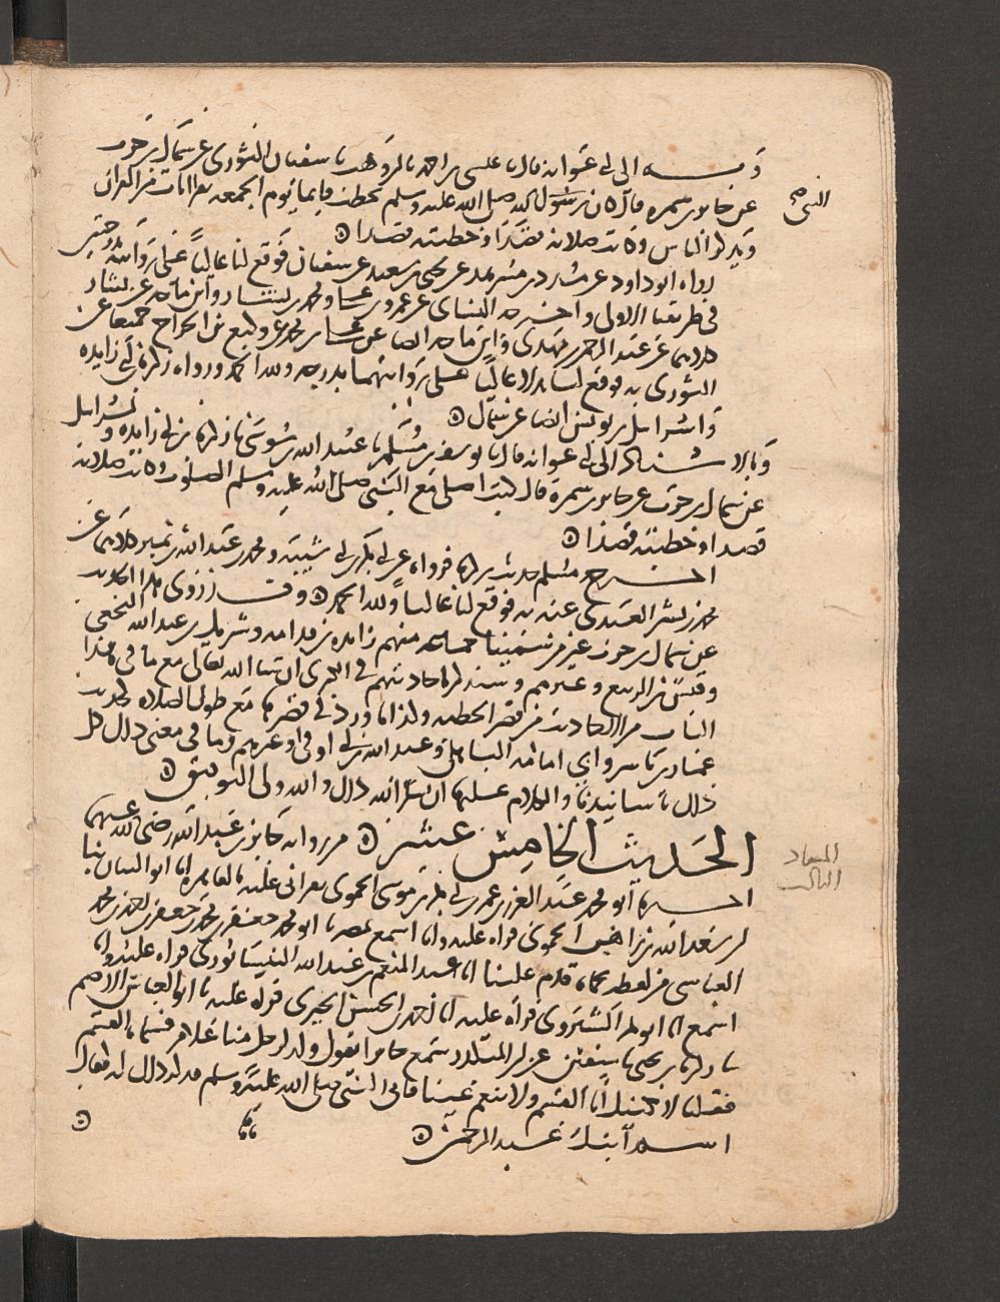 وبه الى ابي عوانه قال نا عيسى بن احمد نا ابن وهب نا سفيان الثوري عن سماك بن حرب
عن جابر بن سمره قال كان رسول الله صلى الله عليه وسلم يخطب قايما يوم الجمعه يقرا ايات من القران
النبي
ويذكر الناس وكانت صلاته قصدا وخطبته قصدا
رواه ابو داود عن مسدد بن مسرهد عن يحيى بن سعيد عن سفيان فوقع لنا عاليا على روايته
في طريقنا الاولى واخرجه النساي عن عمرو بن علي ومحمد بن بشار وابن ماجه عن بشار
كلاهما عن عبد الرحمن بن مهدي وابن ماجه ايضا عن محمد عن وكيع بن الجراح جميعا عن
الثوري به فوقع لنا بدلا عاليا على روايتهما بدرجه ولله الحمد ورواه زكريا بن ابي زايده
واسراييل بن يونس ايضا عن سماك
وبالاسناد الى ابي عوانه قال نا يوسف بن مسلم نا عبيد الله بن موسى نا زكريا بن ابي زايده واسراييل
عن سماك بن حرب عن جابر بن سمرة قال كنت اصلي مع النبي صلى الله عليه وسلم الصلوات وكانت صلاته
قصدا وخطبته قصدا
اخرج مسلم حديث زكريا فرواه عن ابي بكر بن ابي شيبة ومحمد بن عبد الله بن نمير كلاهما عن
محمد بن بشر العبدي عنه به فوقع لنا عاليا ولله الحمد وقد روى هذا الحديث
عن سماك بن حرب غير من سمينا جماعه منهم زايده بن قدامه وشريك بن عبد الله النخعي
وقيس بن الربيع وغيرهم وسنذكر احاديثهم في اخرى ان شا الله تعالى مع ما في هذا
الباب من الاحاديث من قصر الخطبه وكذا ما ورد في قصرها مع طول الصلاه كحديث
عمار بن ياسر وابي امامه الباهلي وعبد الله بن ابي اوفى وغيرهم وما في معنى ذلك كل
ذلك باسانيدنا والكلام عليها ان شا الله ذلك والله ولي التوفيق
الحديث الخامس عشر من روايه جابر بن عبد الله رضي الله عنهما
الميعاد
الثالث
اخبرنا ابو محمد عبد العزيز بن عمر بن ابي بكر بن موسى الحموي بقراتي عليه بالقاهره انا ابو البيان نبا
بن سعد الله بن راهب الحموي قراه عليه وانا اسمع بمصر نا ابو محمد جعفر بن محمد بن جعفر بن احمد بن محمد
العباسي من لفظه بحماه قدم علينا انا عبد المنعم بن عبد الله النيسابوري قراه عليه وانا
اسمع انا ابو بكر الشيروي قراه عليه انا احمد بن الحسن الحيري قراه عليه نا ابو العباس الاصم
نا زكريا بن يحيى نا سفين عن ابن المنكدر سمع جابرا يقول ولد لرجل منا غلام فسماه القسم
فقلنا لا نكنيك ابا القسم ولا ننعم عينا فاتى النبي صلى الله عليه وسلم فذكر ذلك له فقال
اسم ابنك عبد الرحمن